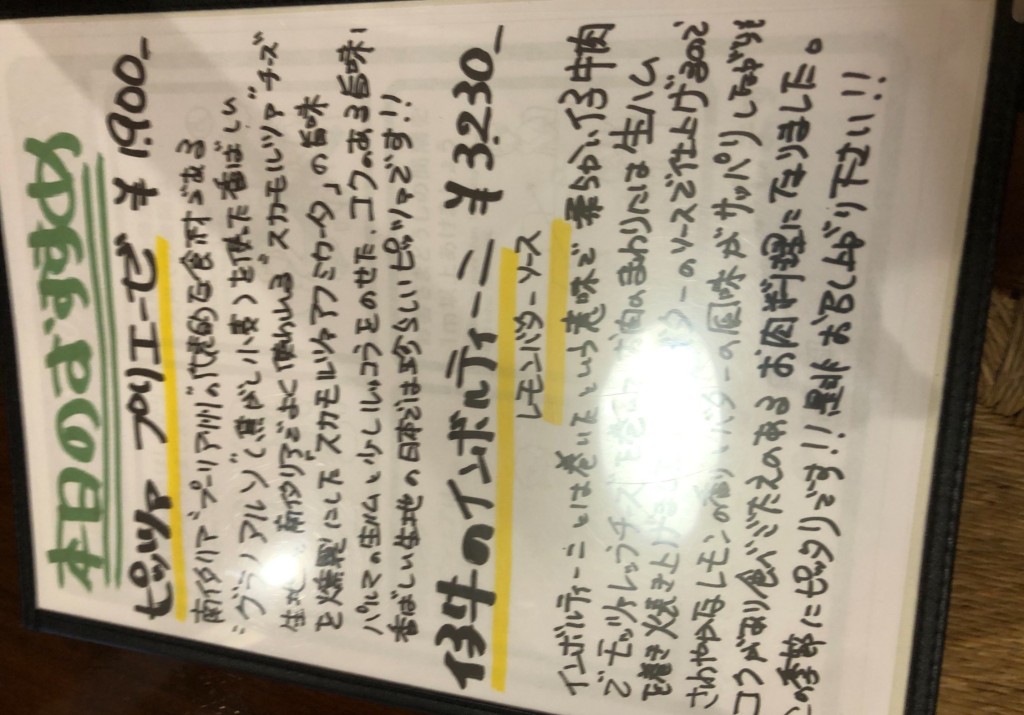 本日のおすすめ
ピッツァ プリエーゼ ¥1,900_
南イタリア"プーリア州"の代表的な食材である
"グラノアルソ"(焦がし小麦)を使った香ばしい
生地と、南イタリアでよく使われる"スカモルツァ"チーズ
を燻製にした「スカモルツァアフミカータ」の旨味
パルマの生ハムと少しルッコラをのせた、コクのある旨味と
香ばしい生地の日本では珍らしいピッツァです!!
仔牛のインボルティーニ ¥3,230_
レモンバターソース
インボルティーニとは巻いたという意味で 柔らかい仔牛肉
でモッツァレッラチーズを巻き お肉のまわりには生ハム
を巻き焼き上げま バターのソースで仕上げるので
さわやかなレモンの香りとバターの風味がサッパリしながらも
コクがあり食べごたえのあるお肉料理になりました。
この季節にピッタリです!!是非お召し上がり下さい!!